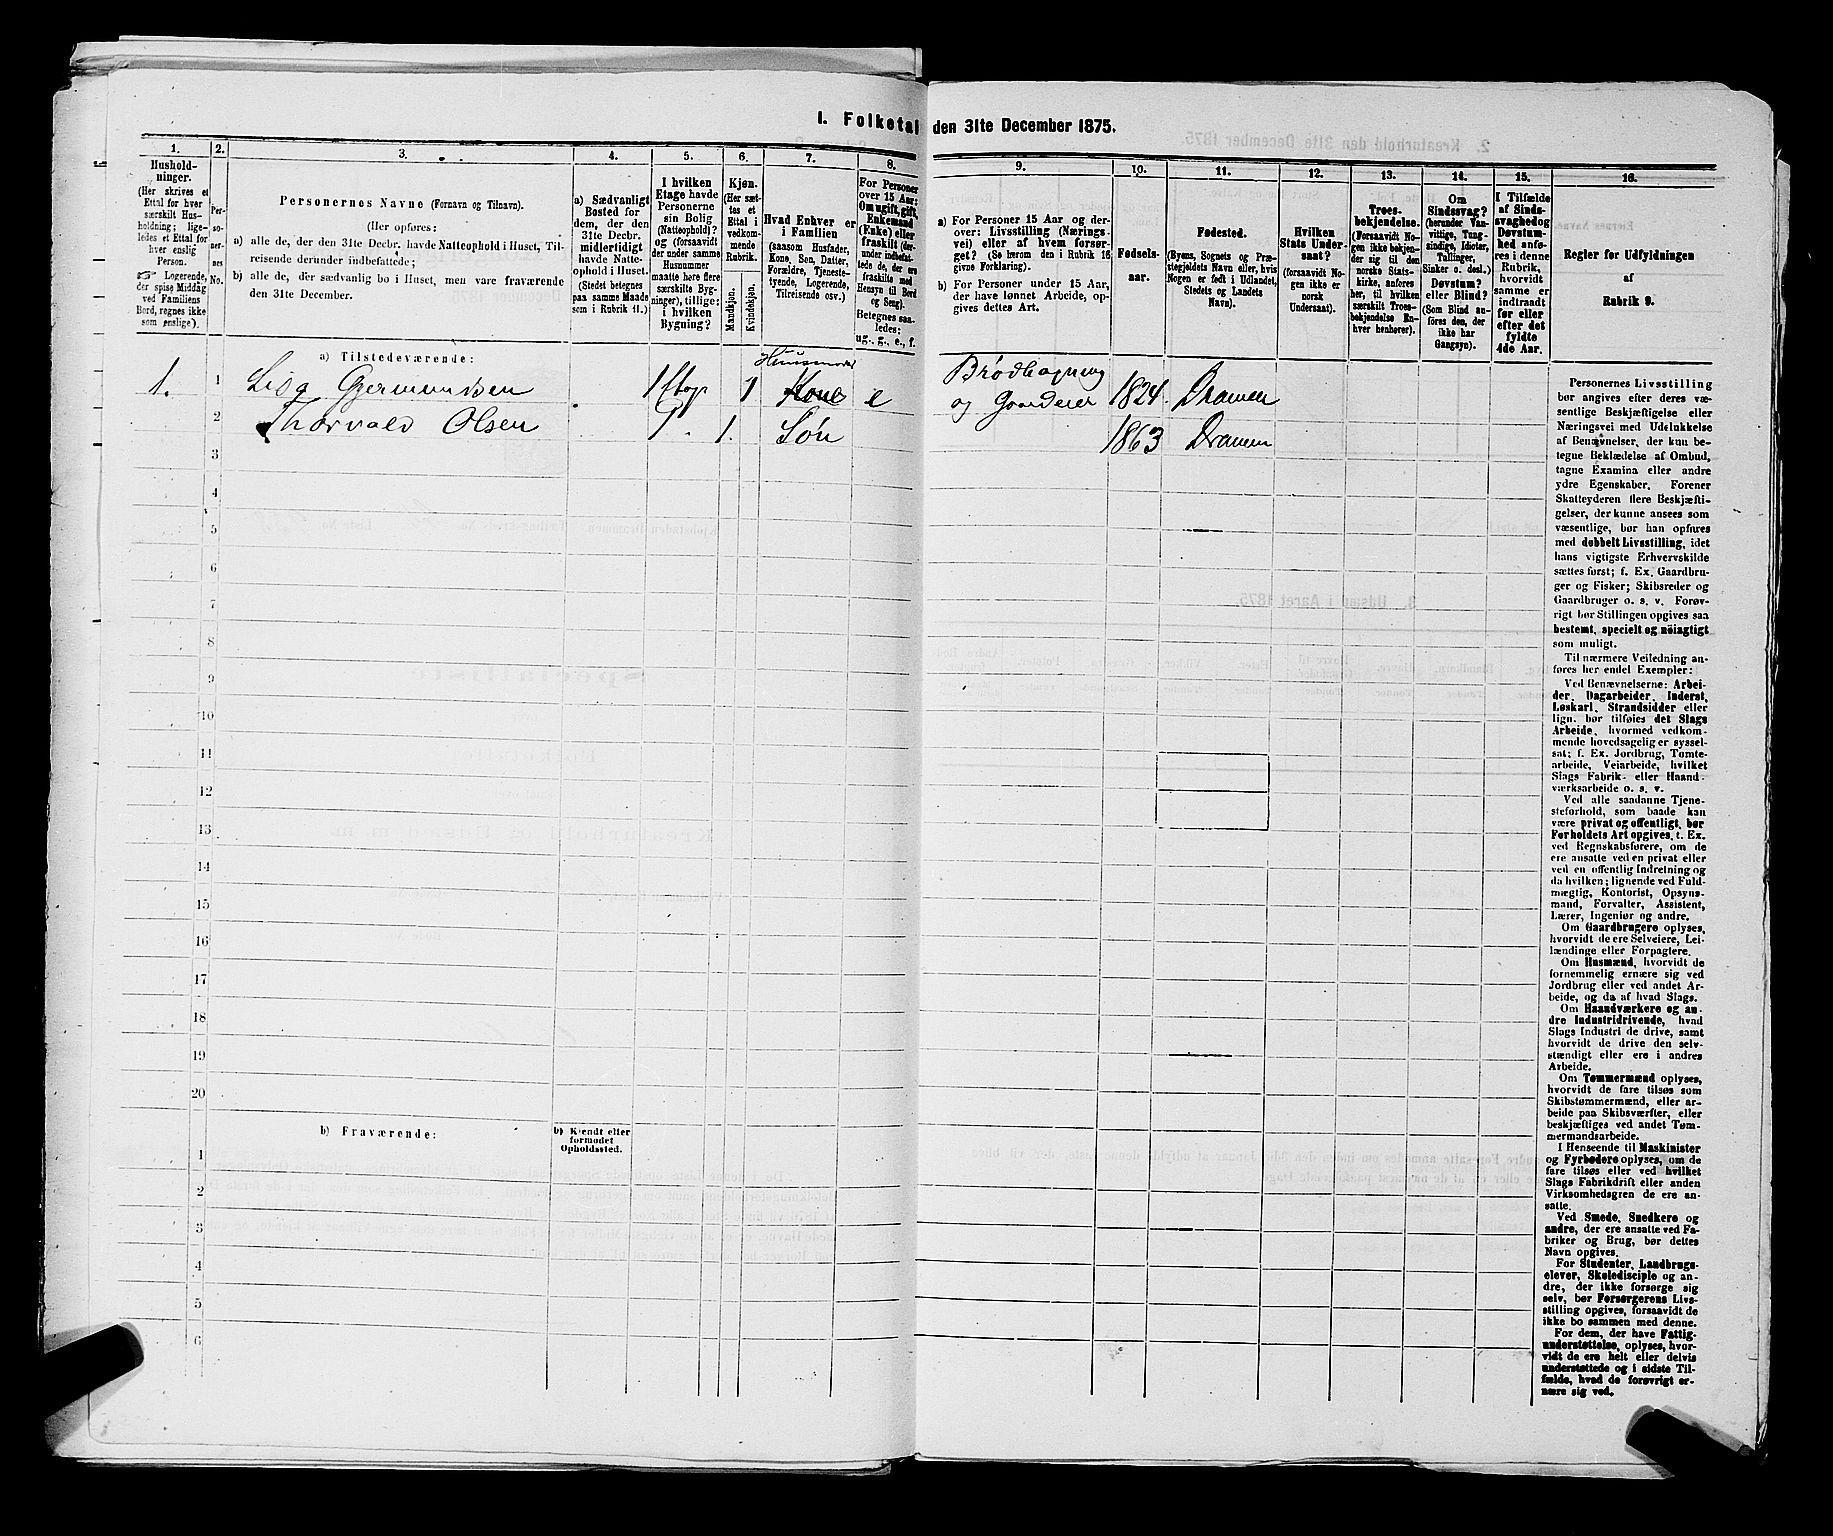 1. Folketal den 31te December 1875.
1. 2. 3. 4. 5. 6. 7. 8. 9. 10. 11. 12. 13. 14. 15. 16.
Hushold-
ninger.
(Her skrives et
Ettal for hver
særskilt Hus-
holdning; lige-
ledes et Ettal for
hver enslig
Person.
☞ Logerende,
der spise Middag
ved Familiens
Bord, regnes ikke
som enslige).
Per-
so-
ner-
nes
No.
Personernes Navne (Fornavn og Tilnavn).
(Her opføres:
a) alle de, der den 31te Decbr. havde Natteophold i Huset, Til-
reisende derunder indbefattede;
b) alle de, der sædvanlig bo i Huset, men vare fraværende
den 31te December.
a) Sædvanligt
Bosted for
dem, der den
31te Decbr.
midlertidigt
havde Natte-
ophold i Huset.
(Stedet betegnes
paa samme Maade
som i Rubrik 11.)
I hvilken
Etage havde
Personerne
sin Bolig
(Natteophold)?
og (forsaavidt
der under samme
Husnummer
maatte høre flere
særskilte Byg-
ninger), tillige:
i hvilken
Bygning?
Kjøn.
(Her sæt-
tes et
Ettal i
vedkom-
mende
Rubrik.
Mandkjøn.
Kvindekjøn.
Hvad Enhver er
i Familien
(saasom Husfader,
Kone, Søn, Datter,
Forældre, Tjeneste-
tyende, Logerende,
Tilreisende osv.)
For Personer
over 15 Aar:
Om ugift, gift,
Enkemand
(Enke) eller
fraskilt (der-
under indbefat-
tede de, der ere
fraskilte med
Hensyn til Bord
og Seng).
Betegnes saa-
ledes:
ug., g., e., f.
a) For Personer 15 Aar og der-
over: Livsstilling (Nærings-
vei) eller af hvem forsør-
get? (Se herom den i Rubrik 16
givne Forklaring).
b) For Personer under 15 Aar,
der have lønnet Arbeide, op-
gives dettes Art.
Fødsels-
aar.
Fødested.
(Byens, Sognets og Præ-
stegjeldets Navn eller, hvis
Nogen er født i Udlandet,
Stedets og Landets
Navn).
Hvilken
Stats Under-
saat?
(forsaavidt No-
gen ikke er
norsk
Undersaat).
Troes-
bekjendelse.
(Forsaavidt No-
gen ikke bekjen-
der sig til den
norske Stats-
kirke, anføres
her, til hvilken
særskilt Troes-
bekjendelse En-
hver henhører).
Om
Sindssvag?
(herunder Van-
vittige, Tung-
sindige, Idioter,
Tullinger,
Sinker o. desl.)
Døvstum?
eller Blind?
(Som Blind an-
føres den, der
ikke har
Gangsyn).
I Tilfælde
af Sinds-
svaghed og
Døvstum-
hed anfø-
res i denne
Rubrik,
hvorvidt
samme er
indtraadt
før eller
efter det
fyldte
4de Aar.
Regler for Udfyldningen
af
Rubrik 9.
a) Tilstedeværende:
1. 1 Lisa Gjermundsen 1 Etag 1 Kone Huusmoder e Brødbagning og Gaardeier 1824. Dramen
2 Thorvald Olsen 1. Søn 1863 Dramen
3
4
5
6
7
8
9
10
11
12
13
14
15
16
17
18
19
20
b) Fraværende:
b) Kjendt eller
formodet
Opholdssted.
1
2
3
4
5
6
Personernes Livsstilling
bør angives efter deres væ-
sentlige Beskjæftigelse eller
Næringsvei med Udelukkelse
af Benævnelser, der kun be-
tegne Beklædelse af Ombud,
tagne Examina eller andre
ydre Egenskaber. Forener
Skatteyderen flere Beskjæfti-
gelser, der kunne ansees som
væsentlige, bør han opføres
med dobbelt Livsstilling, idet
hans vigtigste Erhvervskilde
sættes først; f. Ex. Gaardbru-
ger og Fisker; Skibsreder og
Gaardbruger o. s. v. Forøv-
rigt bør Stillingen opgives saa
bestemt, specielt og nøiagtigt
som muligt.
Til nærmere Veiledning an-
føres her endel Exempler:
Ved Benævnelserne: Arbei-
der, Dagarbeider, Inderst,
Løskarl, Strandsidder eller
lign. bør tilføies det Slags
Arbeide, hvormed vedkom-
mende hovedsagelig er syssel-
sat; f. Ex. Jordbrug, Tømte-
arbeide, Veiarbeide, hvilket
Slags Fabrik- eller Haand-
værksarbeide o. s. v.
Ved alle saadanne Tjene-
steforhold, som baade kan
være privat og offentligt, bør
Forholdets Art opgives, t. Ex.
ved Regnskabsførere, om de
ere ansatte ved en privat eller
ved en offentlig Indretning og
da hvilken; lignende ved Fuld-
mægtig, Kontorist, Opsyns-
mand, Forvalter, Assistent,
Lærer, Ingeniør og andre.
Om Gaardbrugere oplyses,
hvorvidt de ere Selveiere, Lei-
lændinge eller Forpagtere.
Om Husmænd, hvorvidt de
fornemmelig ernære sig ved
Jordbrug eller ved andet Ar-
beide, og da af hvad Slags.
Om Haandværkere og an-
dre Industridrivende, hvad
Slags Industri de drive, samt
hvorvidt de drive den selv-
stændigt eller ere i andres
Arbeide.
Om Tømmermænd oplyses,
hvorvidt de fare tilsøs som
Skibstømmermænd, eller ar-
beide paa Skibsværfter, eller
beskjæftiges ved andet Tøm-
mermandsarbeide.
I Henseende til Maskinister
og Fyrbødere oplyses, om de
fare tilsøs eller ved hvilket
Slags Fabrikdrift eller anden
Virksomhedsgren de ere an-
satte.
Ved Smede, Snedkere og
andre, der ere ansatte ved Fa-
briker og Brug, bør dettes
Navn opgives.
For Studenter, Landbrugs-
elever, Skoledisciple og an-
dre, der ikke forsørge sig
selv, bør Forsørgerens Livs-
stilling opgives, forsaavidt de
ikke bo sammen med denne.
For dem, der have Fattig-
understøttelse, oplyses, hvor-
vidt de ere helt eller delvis
understøttede og i sidste Til-
fælde, hvad de forøvrigt er-
nære sig ved.